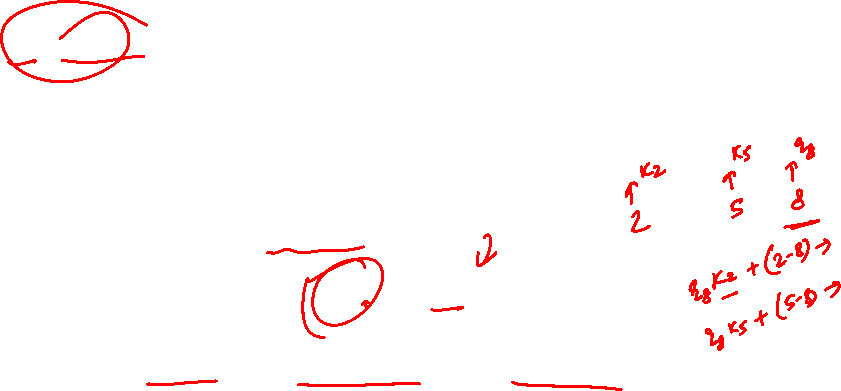 K2 K5 q8
↑ ↑ ↑
2 5 8
q8 K2 + (2-8) →
q8 K5 + (5-8) →